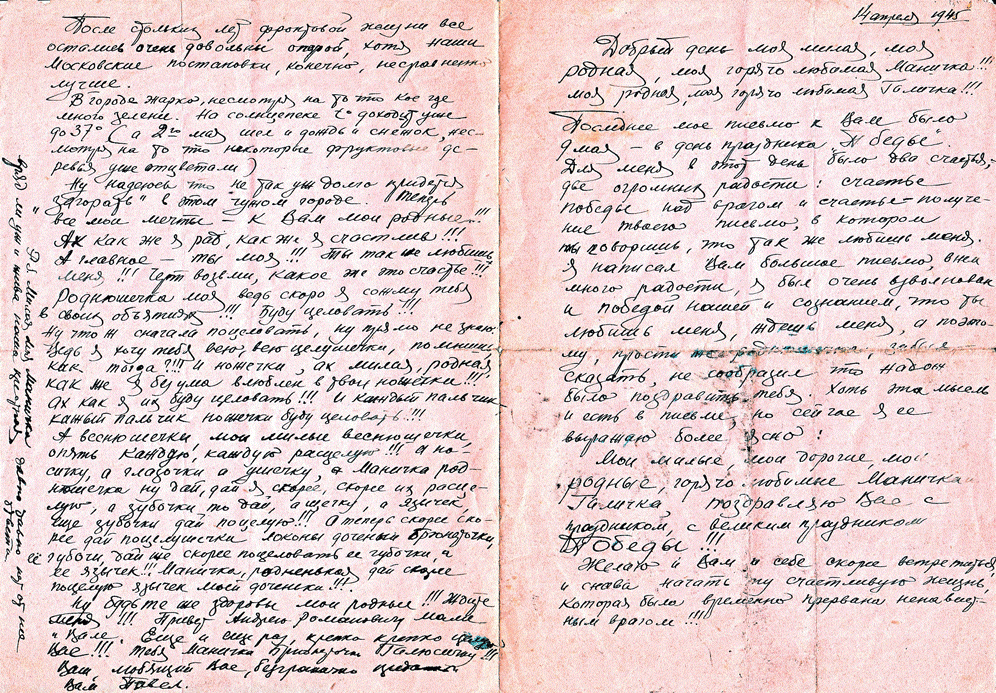 14 апреля 1945
Добрый день моя милая, моя
родная, моя горячо любимая Маничка!!!
моя родная, моя горячо любимая Галичка!!!
Последнее мое письмо к Вам было
9 мая – в день праздника "Победы".
Для меня в этот день было два счастья,
две огромных радости: счастье
победы над врагом и счастье – получе-
ние твоего письма, в котором
ты говоришь, что так же любишь меня.
Я написал Вам большое письмо, в нем
много радости, я был очень взволнован
и победой нашей и сознанием, что ты
любишь меня, ждешь меня, а поэто-
му, прости забыл
сказать, не сообразил что надо
было поздравить тебя. Хоть эта мысль
и есть в письме, но сейчас я ее
выражаю более ясно:
Мои милые, мои дорогие мои
родные, горячо любимые Маничка и
Галичка, поздравляю Вас с
праздником, с великим праздником
Победы!!!
Желаю и Вам и себе скорее встретиться
и снова начать ту счастливую жизнь,
которая была временно прервана ненавист-
ным врагом!!!
После стольких лет фронтовой жизни все
остались очень довольны оперой, хотя наши
Московские постановки, конечно, несравненно
лучше.
В городе жарко, несмотря на то что кое где
много зелени. На солнцепеке t° доходит уже
до 37° (а 2го мая шел и дождь и снежок, нес-
мотря на то что некоторые фруктовые де-
ревья уже отцветали)
Ну надеюсь что не так уж долго придется
"загорать" в этом чужом городе. Теперь
все мои мечты – к Вам мои родные!!!
Ах как же я рад, как же я счастлив!!!
А главное – ты моя!!! Ты так же любишь
меня!!! Черт возьми, какое же это счастье!!!
Роднюшечка моя ведь скоро я сожму тебя
в своих объятиях!!! Буду целовать!!!
Ну что ж сначала поцеловать, ну прямо не знаю.
Ведь я хочу тебя всю, всю целушечки, помнишь
как тогда?!!! И ножечки, ах милая, родная,
как же я безума влюблен в твои ножечки!!!
ах как я их буду целовать!!! И каждый пальчик,
каждый пальчик ножечки буду целовать!!!
А веснюшечки, мои милые веснюшечки,
опять каждую, каждую расцелую!!! А но-
сичку, а глазочки а ушечку, а Маничка род-
нюшечка ну дай, дай я скорее, скорее их расце-
лую, а зубочки то дай, а щечку, а язычек,
еще зубочки дай поцелую!!! А теперь скорее ско-
рее дай поцелушечки локоны доченьки бровочки,
губочи, дай же скорее поцеловать ее губочки, а
ее язычек!!! Маничка, родненькая дай скорее
поцелую язычек моей доченьки!!!
Ну будьте же здоровы мои родные!!! Ждите
меня!!! Привет Андрею Романовичу маме
и Вале. Еще и еще раз, крепко крепко целую
Вас!!! тебя Маничка Галюсечку!!!
Ваш, любящий Вас, безгранично
Вам Павел.
Да милая моя Маничка
вряд ли уж и жива наша давно давно нет от нее
ответа